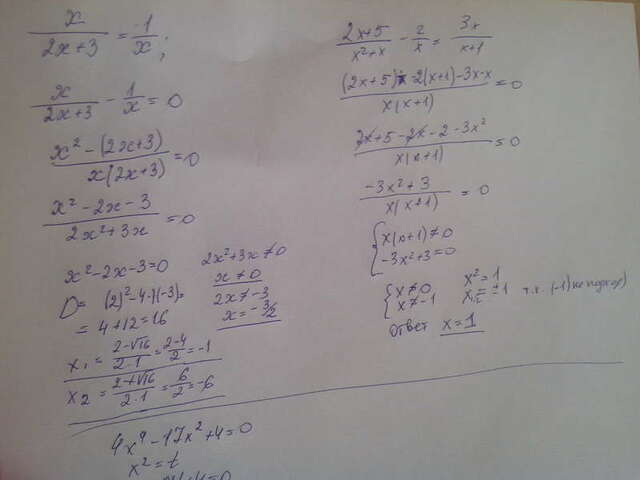 x/(2x+3) = 1/x;
x/(2x+3) - 1/x = 0
(x² - (2x+3))/(x(2x+3)) = 0
(x² - 2x - 3)/(2x² + 3x) = 0
x² - 2x - 3 = 0
D = (2)² - 4·1(-3) =
= 4 + 12 = 16
x₁ = (2 - √16)/(2·1) = (2-4)/2 = -1
x₂ = (2 + √16)/(2·1) = 6/2 = -6
2x² + 3x ≠ 0
x ≠ 0
2x ≠ -3
x = -3/2
(2x+5)/(x²+x) - 2/x = 3x/(x+1)
((2x+5) - 2(x+1) - 3x·x)/(x(x+1)) = 0
(2x + 5 - 2x - 2 - 3x²)/(x(x+1)) = 0
(-3x² + 3)/(x(x+1)) = 0
{ x(x+1) ≠ 0
-3x² + 3 = 0
{ x ≠ 0
x ≠ -1
x² = 1
x₁,₂ = ±1 т.к. (-1) не подход)
ответ x = 1
4x⁴ - 17x² + 4 = 0
x² = t